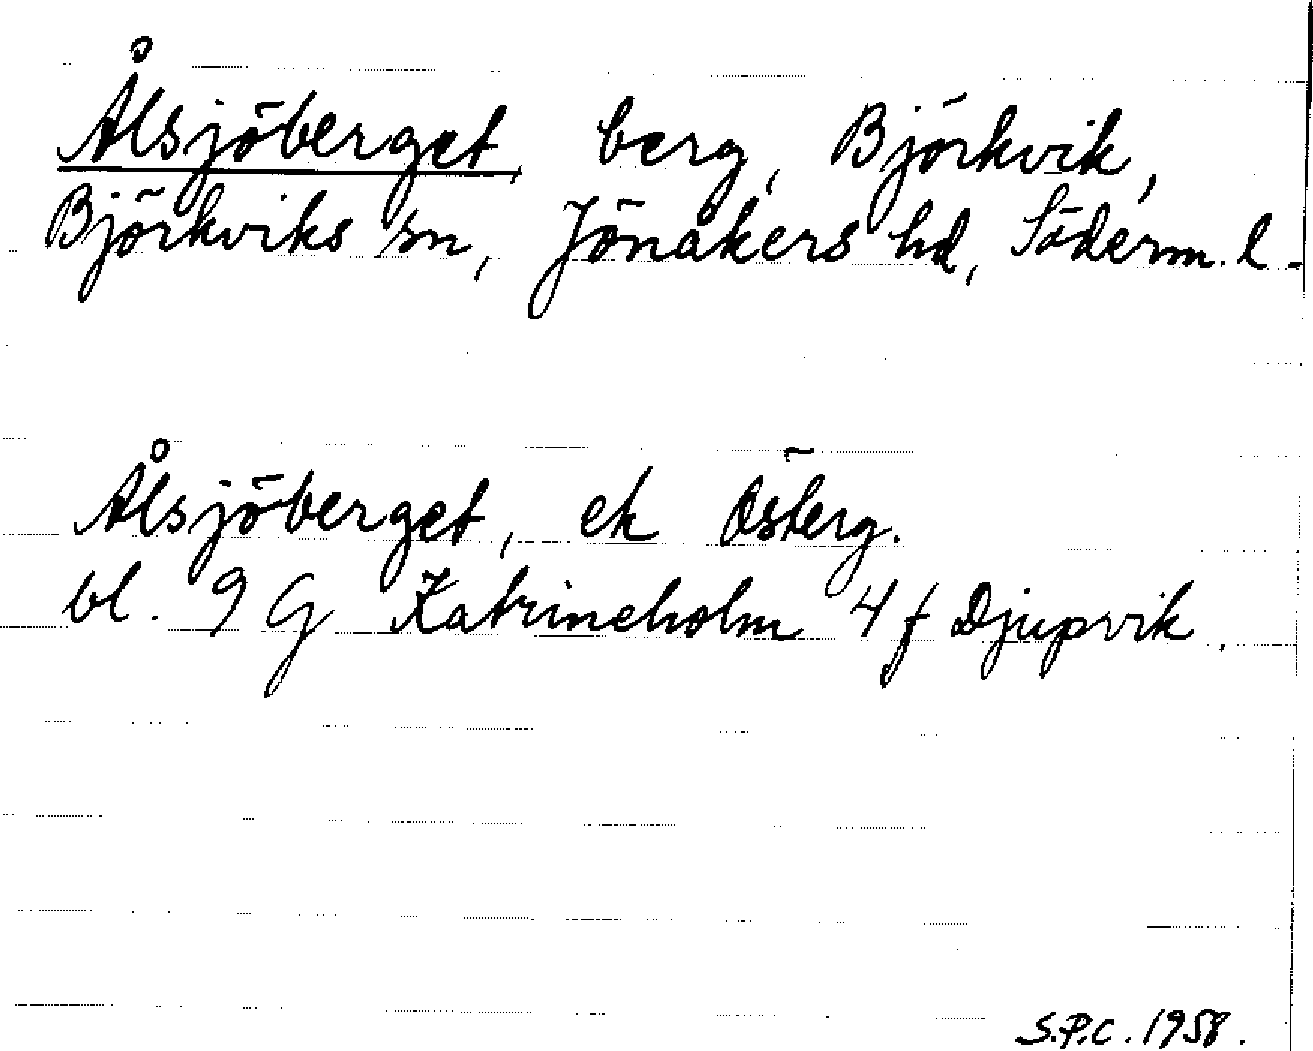 Ålsjöberget, berg, Björkvik,
Björkviks sn, Jönåkers hd, Söderm. l.
Ålsjöberget, ek Österg.
bl. 9 G Katrineholm 4 f Djupvik.
S.P.C. 1958.